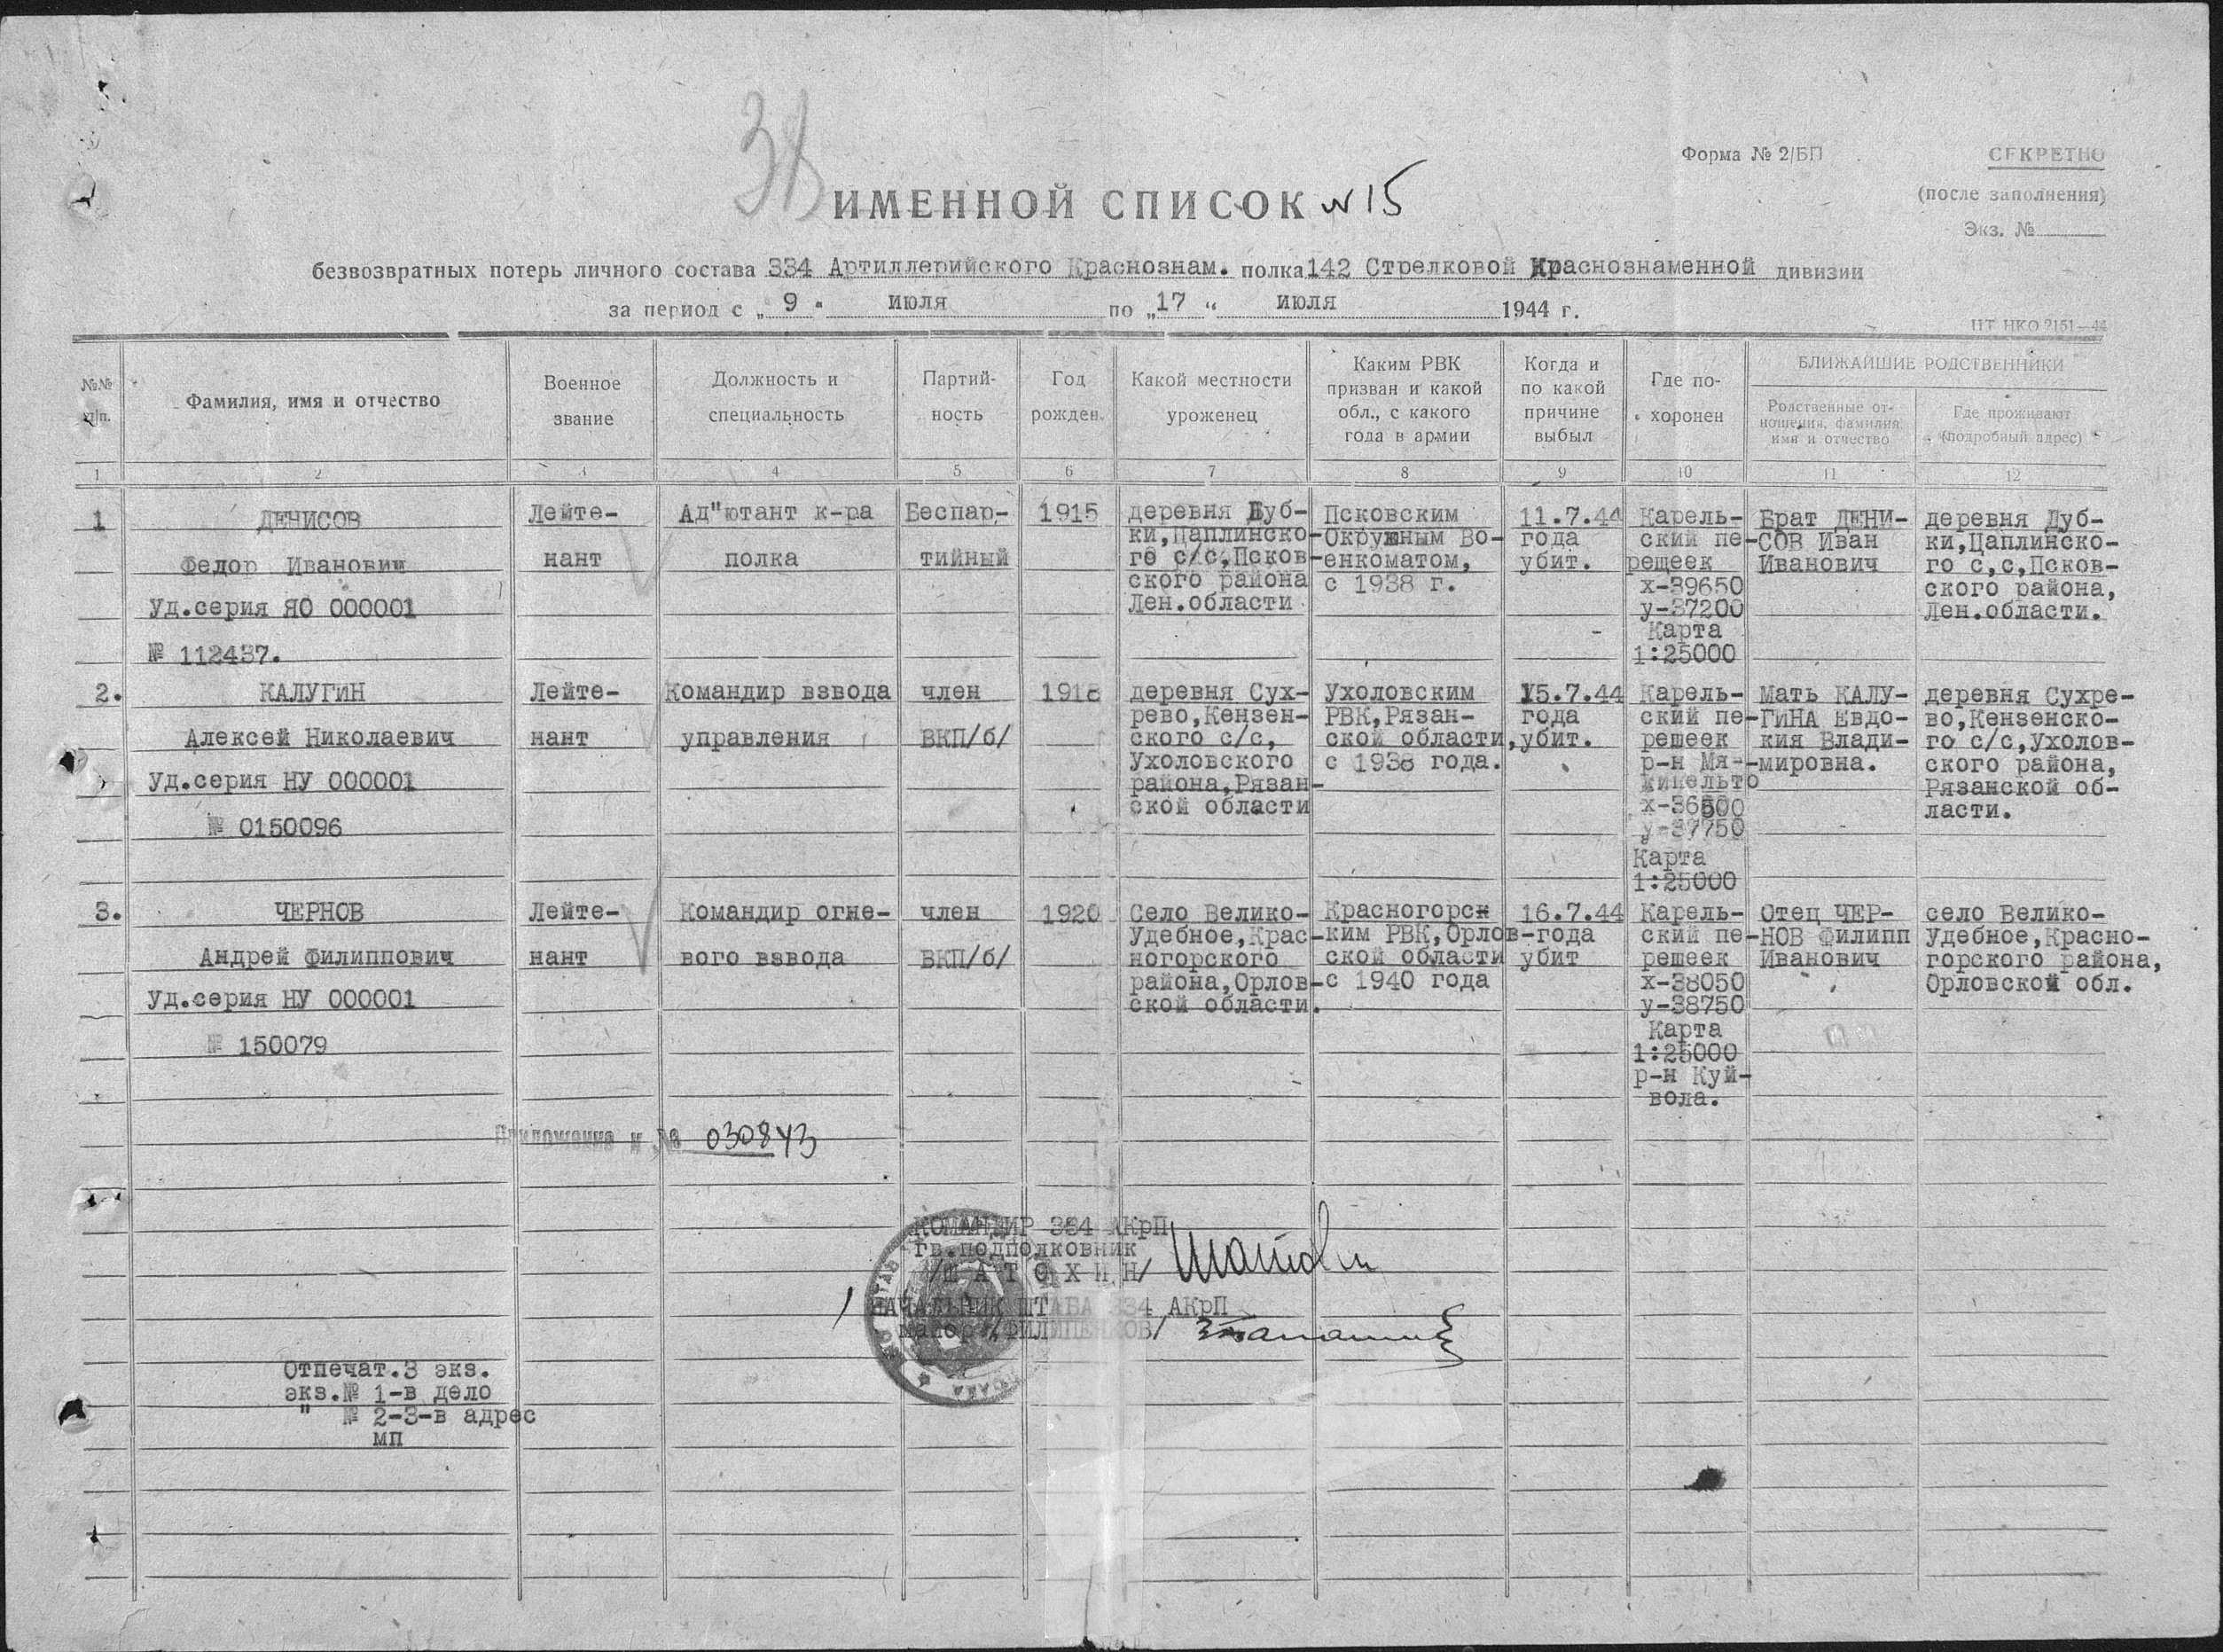 38
Форма № 2/БП
СЕКРЕТНО
(после заполнения)
Экз. №
ИМЕННОЙ СПИСОК N 15
безвозвратных потерь личного состава 334 Артиллерийского Краснознам. полка 142 Стрелковой Краснознаменной дивизии
за период с „ 9 " июля по „ 17 " июля 1944 г.
ПТ НКО 2151—44
№№ п/п.
Фамилия, имя и отчество
Военное звание
Должность и специальность
Партий-ность
Год рожден.
Какой местности уроженец
Каким РВК призван и какой обл., с какого года в армии
Когда и по какой причине выбыл
Где по-хоронен
БЛИЖАЙШИЕ РОДСТВЕННИКИ
Родственные от-ношения, фамилия, имя и отчество
Где проживают (подробный адрес)
1 2 3 4 5 6 7 8 9 10 11 12
1
ДЕНИСОВ
Федор Иванович
Уд.серия ЯО 000001
№ 112437.
Лейте-
нант
Ад"ютант к-ра
полка
Беспар-
тийный
1915
деревня Дуб-
ки,Цаплинско-
го с/с,Псков-
ского района
Лен.области
Псковским
Окружным Во-
енкоматом,
с 1938 г.
11.7.44
года
убит.
Карель-
ский пе-
рещеек
х-39650
у-37200
Карта
1:25000
Брат ДЕНИ-
СОВ Иван
Иванович
деревня Дуб-
ки,Цаплинско-
го с,с,Псков-
ского района,
Лен.области.
2.
КАЛУГИН
Алексей Николаевич
Уд.серия НУ 000001
№ 0150096
Лейте-
нант
Командир взвода
управления
член
ВКП/б/
1918
деревня Сух-
рево,Кензен-
ского с/с,
Ухоловского
района,Рязан-
ской области
Ухоловским
РВК,Рязан-
ской области,
с 1938 года.
15.7.44
года
убит.
Карель-
ский пе-
решеек
р-н Мя-
кикельто
х-36500
у-37750
Карта
1:25000
Мать КАЛУ-
ГИНА Евдо-
кия Влади-
мировна.
деревня Сухре-
во,Кензенско-
го с/с,Ухолов-
ского района,
Рязанской об-
ласти.
3.
ЧЕРНОВ
Андрей Филиппович
Уд.серия НУ 000001
№ 150079
Лейте-
нант
Командир огне-
вого взвода
член
ВКП/б/
1920
Село Велико-
Удебное,Крас-
ногорского
района,Орлов-
ской области.
Красногорск
ким РВК,Орлов-
ской области
с 1940 года
16.7.44
года
убит
Карель-
ский пе-
решеек
х-38050
у-38750
Карта
1:25000
р-н Куй-
вола.
Отец ЧЕР-
НОВ Филипп
Иванович
село Велико-
Удебное,Красно-
горского района,
Орловской обл.
Приложение к № 030843
КОМАНДИР 334 АКрП
гв.подполковник
/Ш А Т О Х И Н/
НАЧАЛЬНИК ШТАБА 334 АКрП
майор /ФИЛИПЕНКОВ/
Отпечат.3 экз.
экз.№ 1-в дело
" № 2-3-в адрес
мп